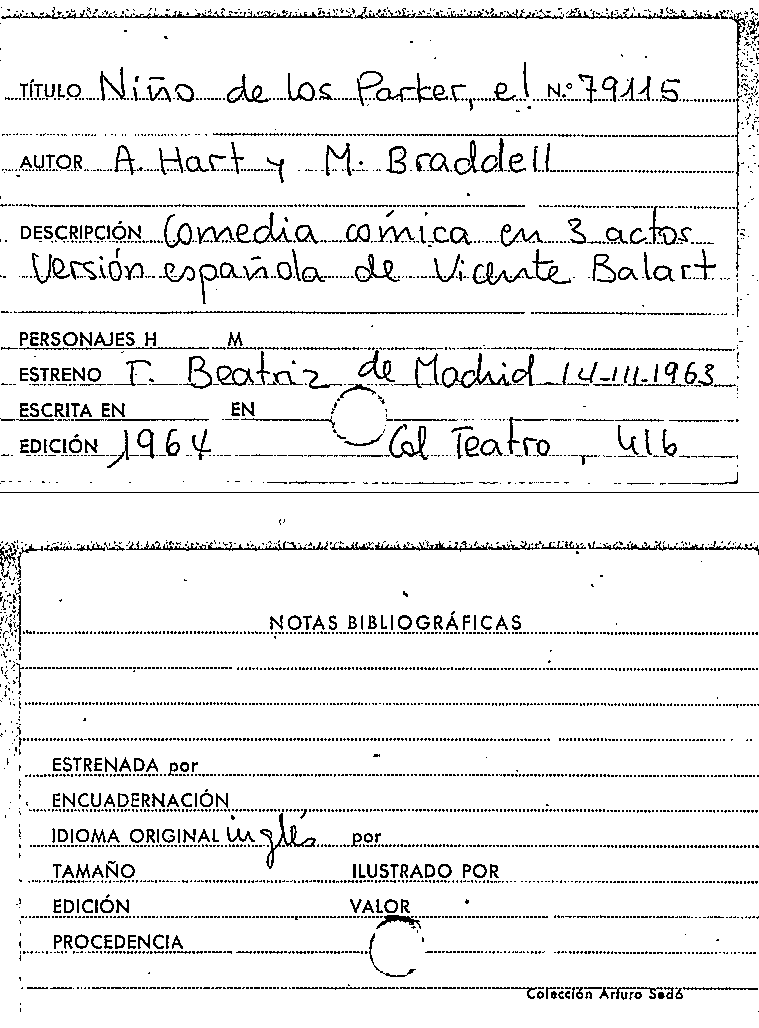 TÍTULO Niño de los Parker, el N.º 79115
AUTOR A. Hart y M. Braddell
DESCRIPCIÓN Comedia cómica en 3 actos
Versión española de Vicente Balart
PERSONAJES H M
ESTRENO T. Beatriz de Madrid 14-III-1963
ESCRITA EN EN
EDICIÓN 1964 Col Teatro, 416
NOTAS BIBLIOGRÁFICAS
ESTRENADA por
ENCUADERNACIÓN
IDIOMA ORIGINAL inglés por
TAMAÑO ILUSTRADO POR
EDICIÓN VALOR
PROCEDENCIA
Colección Arturo Sedó